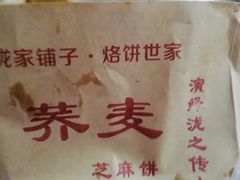 泷家铺子·烙饼世家
荞麦
芝麻饼
演绎泷之传